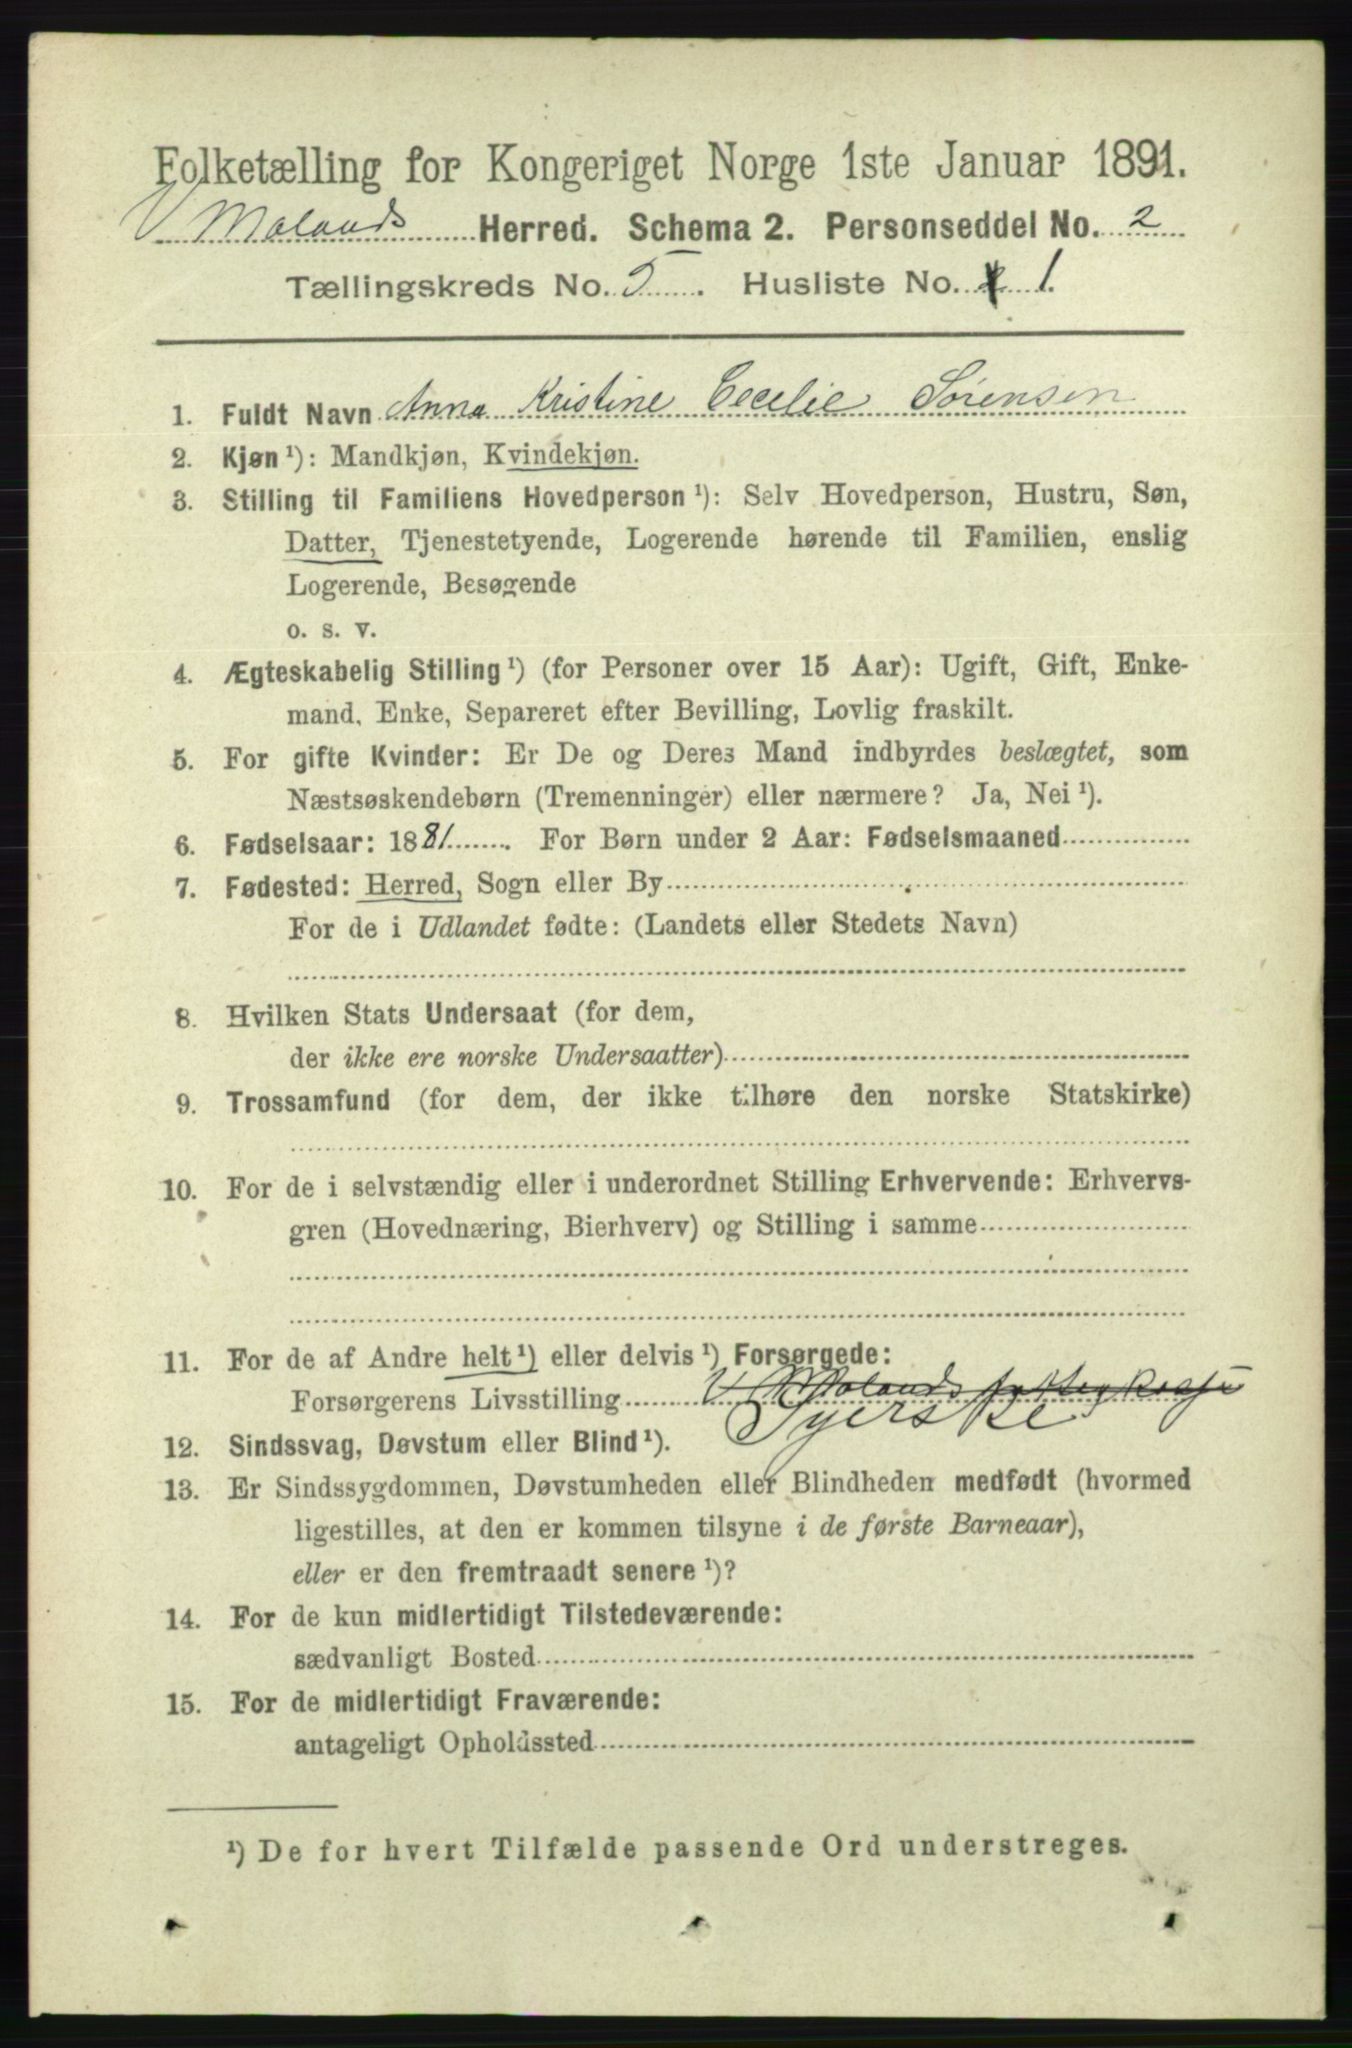 Folketælling for Kongeriget Norge 1ste Januar 1891.
V Molands Herred. Schema 2. Personseddel No. 2
Tællingskreds No. 5. Husliste No. 1.
1. Fuldt Navn Anna Kristine Cecelie Sørensen
2. Kjøn¹): Mandkjøn, Kvindekjøn.
3. Stilling til Familiens Hovedperson¹): Selv Hovedperson, Hustru, Søn,
Datter, Tjenestetyende, Logerende hørende til Familien, enslig
Logerende, Besøgende
o. s. v.
4. Ægteskabelig Stilling¹) (for Personer over 15 Aar): Ugift, Gift, Enke-
mand, Enke, Separeret efter Bevilling, Lovlig fraskilt.
5. For gifte Kvinder: Er De og Deres Mand indbyrdes beslægtet, som
Næstsøskendebørn (Tremenninger) eller nærmere? Ja, Nei¹).
6. Fødselsaar: 1881. For Børn under 2 Aar: Fødselsmaaned
7. Fødested: Herred, Sogn eller By
For de i Udlandet fødte: (Landets eller Stedets Navn)
8. Hvilken Stats Undersaat (for dem,
der ikke ere norske Undersaatter)
9. Trossamfund (for dem, der ikke tilhøre den norske Statskirke)
10. For de i selvstændig eller i underordnet Stilling Erhvervende: Erhvervs-
gren (Hovednæring, Bierhverv) og Stilling i samme
11. For de af Andre helt¹) eller delvis¹) Forsørgede:
Forsørgerens Livsstilling V Molands fattigkasse
Syerske
12. Sindssvag, Døvstum eller Blind¹).
13. Er Sindssygdommen, Døvstumheden eller Blindheden medfødt (hvormed
ligestilles, at den er kommen tilsyne i de første Barneaar),
eller er den fremtraadt senere¹)?
14. For de kun midlertidigt Tilstedeværende:
sædvanligt Bosted
15. For de midlertidigt Fraværende:
antageligt Opholdssted
¹) De for hvert Tilfælde passende Ord understreges.